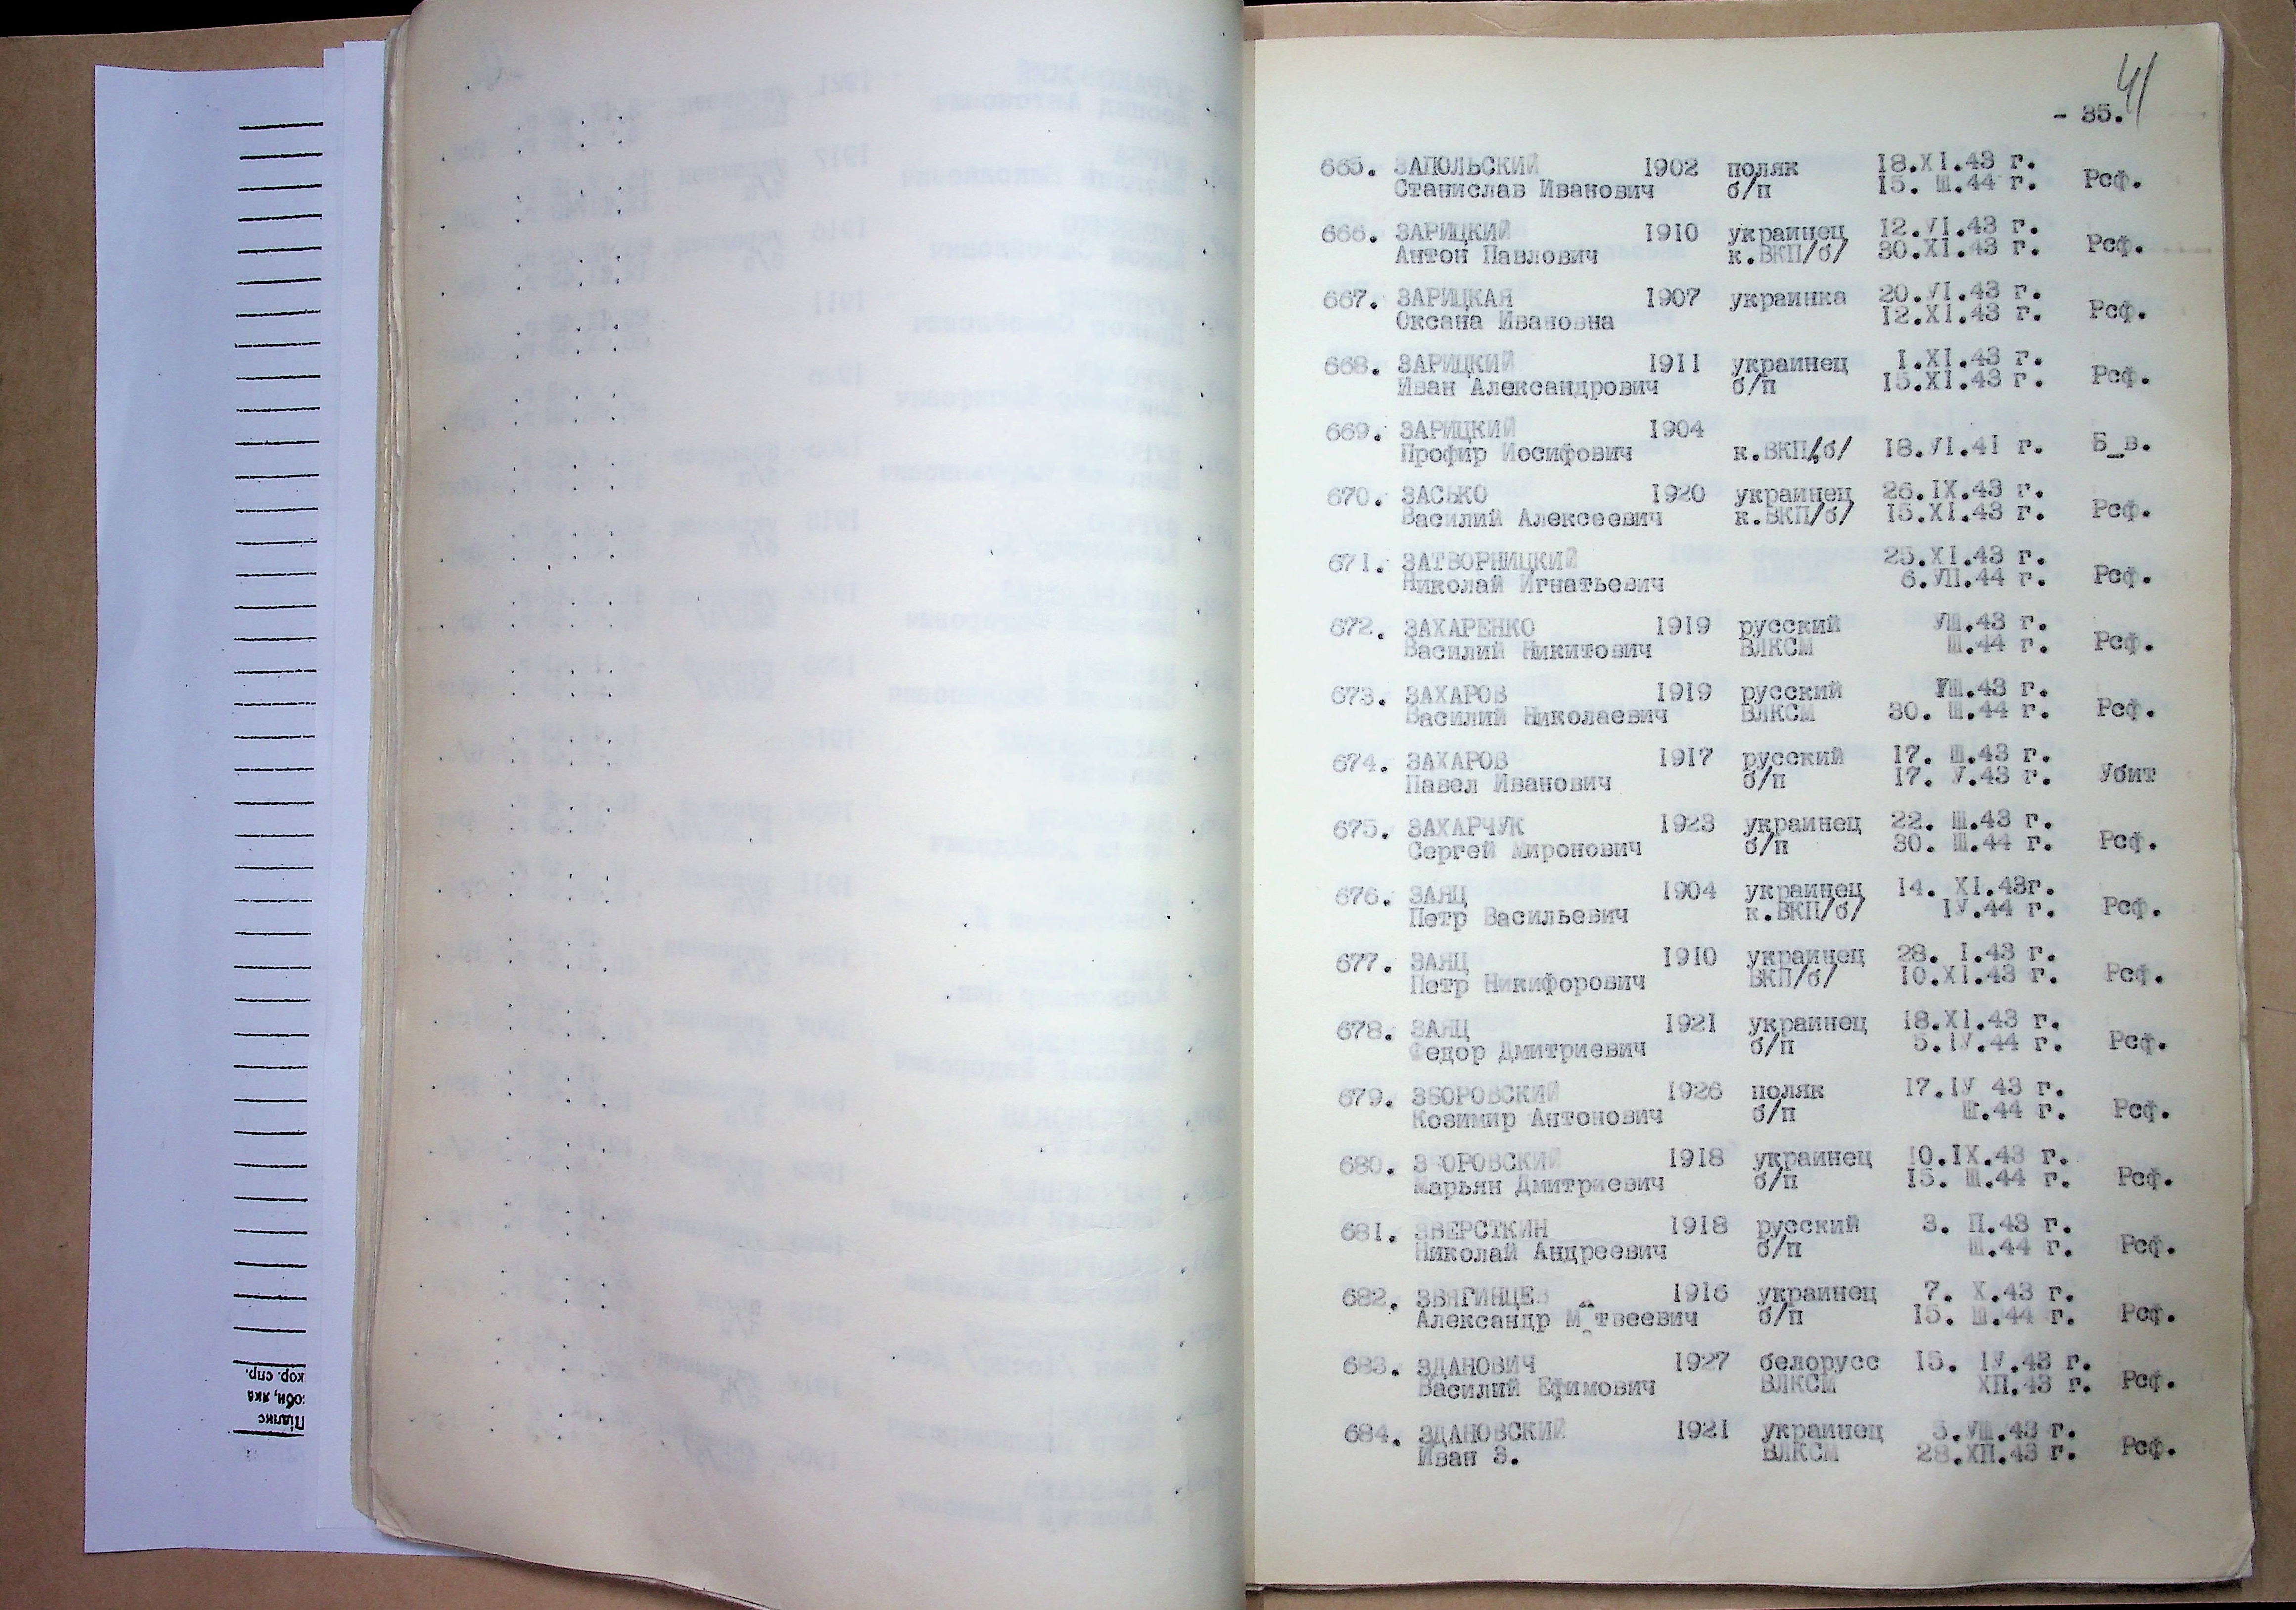 41
- 35.
665. ЗАПОЛЬСКИЙ 1902 поляк 18.XI.43 г.
Станислав Иванович б/п 15. Ш.44 г. Рсф.
666. ЗАРИЦКИЙ 1910 украинец 12.УI.43 г.
Антон Павлович к.ВКП/б/ 30.XI.43 г. Рсф.
667. ЗАРИЦКАЯ 1907 украинка 20.УI.43 г.
Оксана Ивановна 12.XI.43 г. Рсф.
668. ЗАРИЦКИЙ 1911 украинец 1.XI.43 г.
Иван Александрович б/п 15.XI.43 г. Рсф.
669. ЗАРИЦКИЙ 1904
Профир Иосифович к.ВКП/б/ 18.УI.41 г. Б_в.
670. ЗАСЬКО 1920 украинец 26.IX.43 г.
Василий Алексеевич к.ВКП/б/ 15.XI.43 г. Рсф.
671. ЗАТВОРНИЦКИЙ 25.XI.43 г.
Николай Игнатьевич 6.УП.44 г. Рсф.
672. ЗАХАРЕНКО 1919 русский УШ.43 г.
Василий Никитович ВЛКСМ Ш.44 г. Рсф.
673. ЗАХАРОВ 1919 русский УШ.43 г.
Василий Николаевич ВЛКСМ 30. Ш.44 г. Рсф.
674. ЗАХАРОВ 1917 русский 17. Ш.43 г.
Павел Иванович б/п 17. У.43 г. Убит
675. ЗАХАРЧУК 1923 украинец 22. Ш.43 г.
Сергей Миронович б/п 30. Ш.44 г. Рсф.
676. ЗАЯЦ 1904 украинец 14. XI.43г.
Петр Васильевич к.ВКП/б/ IУ.44 г. Рсф.
677. ЗАЯЦ 1910 украинец 28. I.43 г.
Петр Никифорович ВКП/б/ 10.XI.43 г. Рсф.
678. ЗАЯЦ 1921 украинец 18.XI.43 г.
Федор Дмитриевич б/п 5.IУ.44 г. Рсф.
679. ЗБОРОВСКИЙ 1926 поляк 17.IУ 43 г.
Козимир Антонович б/п Ш.44 г. Рсф.
680. ЗБОРОВСКИЙ 1918 украинец 10.IX.43 г.
Марьян Дмитриевич б/п 15. Ш.44 г. Рсф.
681. ЗВЕРСТКИН 1918 русский 3. П.43 г.
Николай Андреевич б/п Ш.44 г. Рсф.
682. ЗВЯГИНЦЕВ 1916 украинец 7. X.43 г.
Александр М_твеевич б/п 15. Ш.44 г. Рсф.
683. ЗДАНОВИЧ 1927 белорусс 15. IУ.43 г.
Василий Ефимович ВЛКСМ ХП.43 г. Рсф.
684. ЗДАНОВСКИЙ 1921 украинец 5.УШ.43 г.
Иван З. ВЛКСМ 28.ХП.43 г. Рсф.
Підпис
соби, яка
кор. спр.